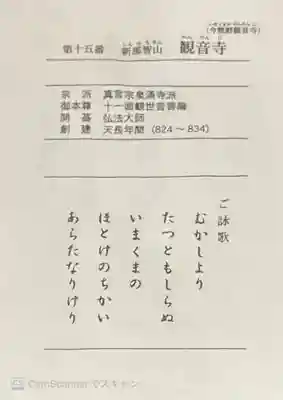 (今熊野観音寺)
第十五番 新那智山 観音寺
宗派 真言宗泉涌寺派
御本尊 十一面観世音菩薩
開基 弘法大師
創建 天長年間(824〜834)
ご詠歌
むかしより
たつともしらぬ
いまくまの
ほとけのちかい
あらたなりけり
CamScanner でスキャン